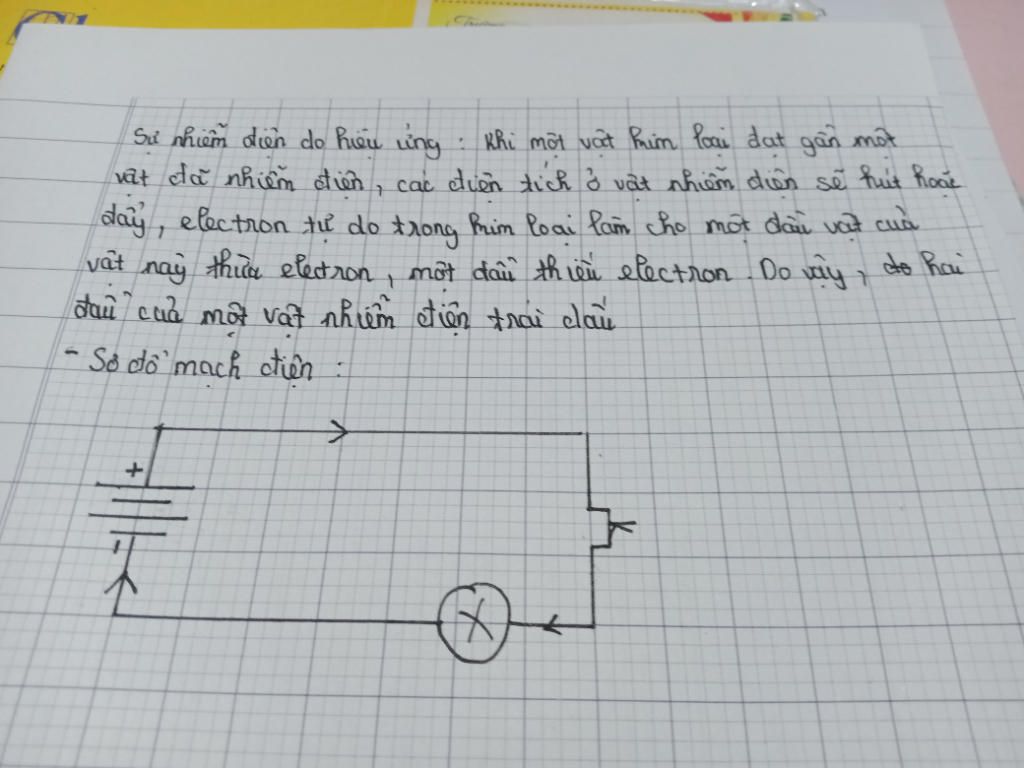 Sự nhiễm điện do hiệu ứng : Khi một vật kim loại đạt gần một
vật đã nhiễm điện, các điện tích ở vật nhiễm điện sẽ hút hoặc
đẩy, electron tự do trong kim loại làm cho một đầu vật của
vật này thừa electron, một đầu thiếu electron. Do vậy, do hai
đầu của một vật nhiễm điện trái dấu
- Sơ đồ mạch điện :
+
-